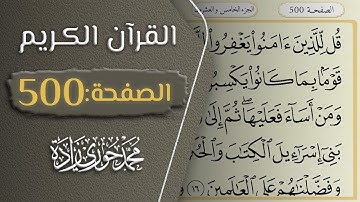 القرآن الكريم
الصفحة:500
محمد خوري زاده
الصفحة 500
الجزء الخامس والعشرو
قُل لِّلَّذِينَ ءَامَنُوا۟ يَغْفِرُوا۟
قَوْمًۢا بِمَا كَانُوا۟ يَكْسِبُو
وَمَنْ أَسَآءَ فَعَلَيْهَا ۖ ثُمَّ إِلَىٰ
بَنِىٓ إِسْرَٰٓءِيلَ ٱلْكِتَٰبَ وَٱلْحُ
وَفَضَّلْنَٰهُمْ عَلَى ٱلْعَٰلَمِينَ ١٦